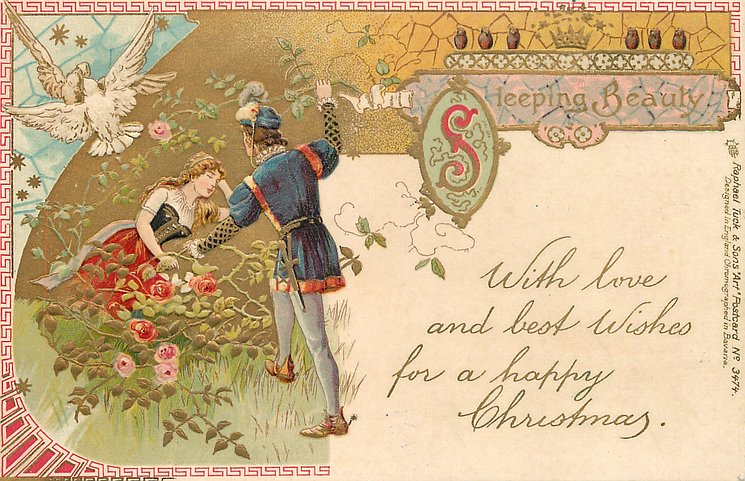 Sleeping Beauty
With love
and best Wishes
for a happy
Christmas.
Raphael Tuck & Sons' "Art" Postcard Nº 3474.
Designed in England Chromographed in Bavaria.